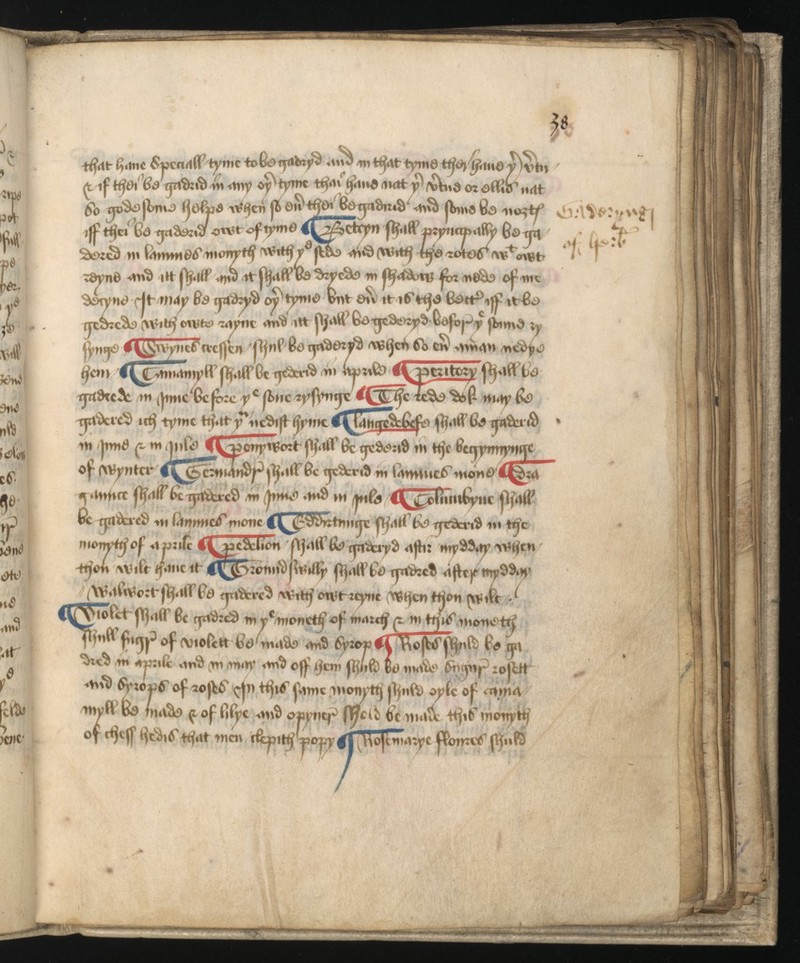 38
that haue speciall tyme to be gadryd and in that tyme thei haue yͭ v̄tu
& if thei be gadrid in any oyͬ tyme thai haue nat yͭ v̄tue or ellis nat
so gode some helpe when so eũ thei be gadrid and some be nozt
iff thei be gaderid owt of tyme ¶ Beteyn shall pryncypally be ga
dered in lammes monyth with yͤ sede and with the rotes wͭ owt
reyne and itt shall and it shall be dryede in schadow for nede of me
decyne It may be gadryd oyͬ tyme but eũ it is the bettͬ iff it be
gedrede with owte rayne and itt shall be gederyd befor yͤ sonne ry
synge ¶ Swynes cressen shul be gaderyd when so eũ aman nedye
hem ¶ Camamyll shall be gederid in aprile ¶ peritory shall be
gadrede in June before yͤ sone rysynge ¶ The rede dok may be
gadered ich tyme that yͬ nedist hyme ¶ langedebefe shall be gaderid
in June & in Jule ¶ penywort shall be gederid in the begynnynge
of wynter ¶ Germandr shall be gederid in lammes mone ¶ Dra
gaunce shall be gadered in June and in Jule ¶ Columbyne shall
be gadered in lammes mone ¶ Eddirtunge shall be gederid in the
monyth of aprile ¶ pedelion shall be gaderyd aftir mydday when
thou wilt haue it ¶ Groundswilly shall be gadred after mydday
walwort shall be gadered with owt reyne when thou wilt
¶ Violet shall be gadred in yͤ moneth of march & in this moneth
shull sugr of violett be made and syrop ¶ Roses shuld be ga
dred in aprile and in may and off hem shuld be made sugur rosett
and syrops of roses In this same monyth shuld oyle of cama
myll be made & of lilye and opyner shold be made this monyth
of chess hedis that men clepith popy ¶ Rosemarye floures shuld
Gaderyng
of herb